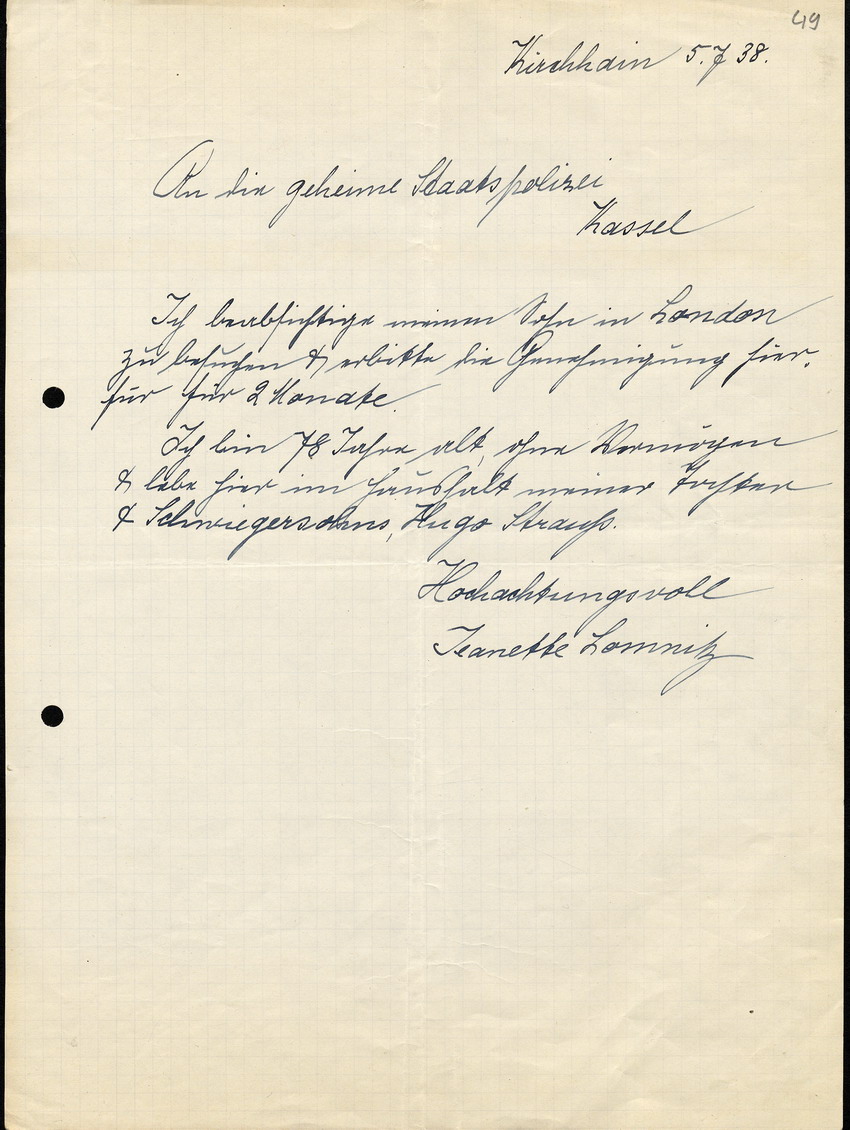 49
Kirchhain 5.7.38.
An die geheime Staatspolizei
Kassel
Ich beabsichtige meinen Sohn in London
zu besuchen & erbitte die Genehmigung hier-
für für 2 Monate.
Ich bin 78 Jahre alt, ohne Vermögen
& lebe hier im Haushalt meiner Tochter
& Schwiegersohns, Hugo Strauß.
Hochachtungsvoll
Jeanette Lomnitz